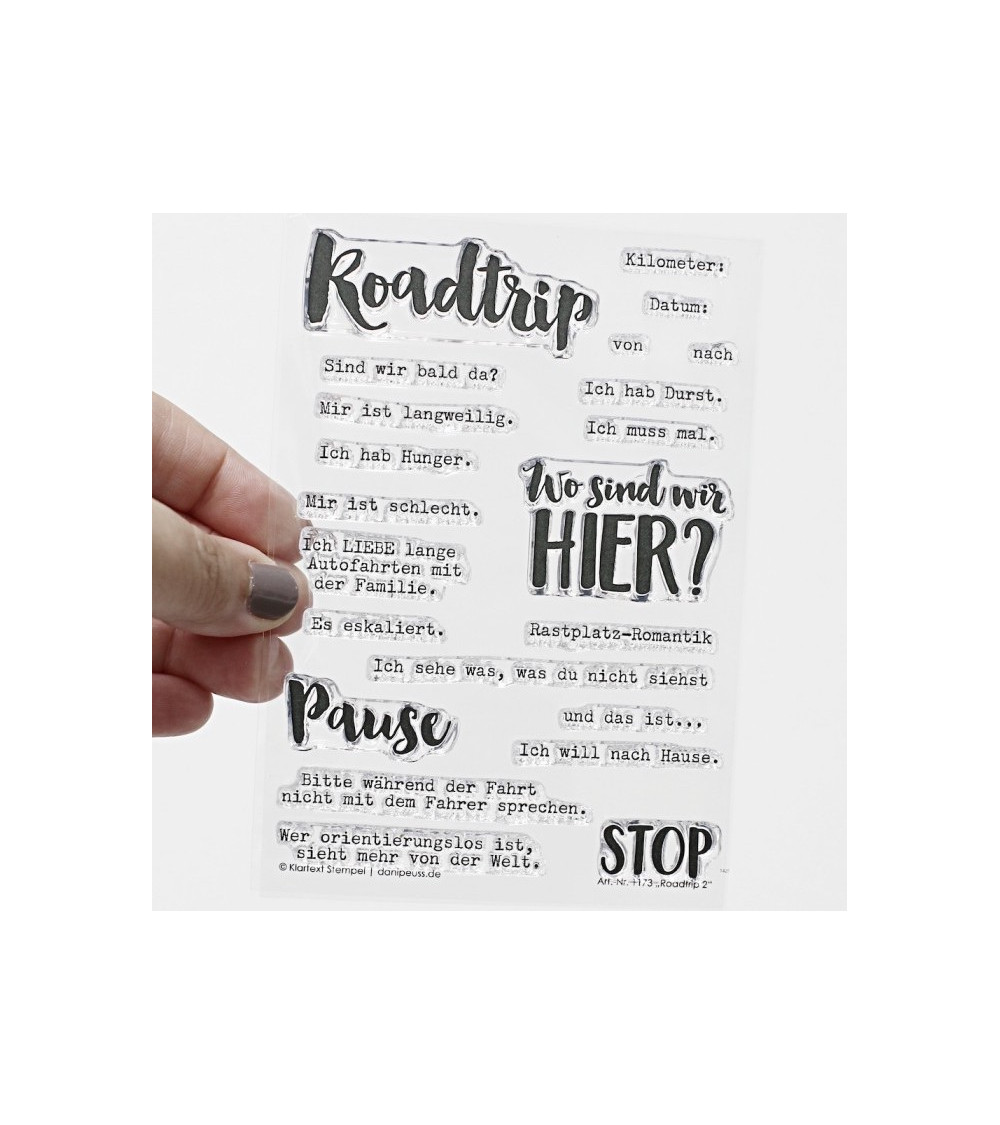 Roadtrip
Kilometer:
Datum:
von nach
Sind wir bald da?
Ich hab Durst.
Mir ist langweilig.
Ich muss mal.
Ich hab Hunger.
Wo sind wir
HIER?
Mir ist schlecht.
Ich LIEBE lange
Autofahrten mit
der Familie.
Es eskaliert.
Rastplatz-Romantik
Ich sehe was, was du nicht siehst
und das ist...
Pause
Ich will nach Hause.
Bitte während der Fahrt
nicht mit dem Fahrer sprechen.
Wer orientierungslos ist,
sieht mehr von der Welt.
STOP
© Klartext Stempel | danipeuss.de
Art.-Nr. 1173 „Roadtrip 2"